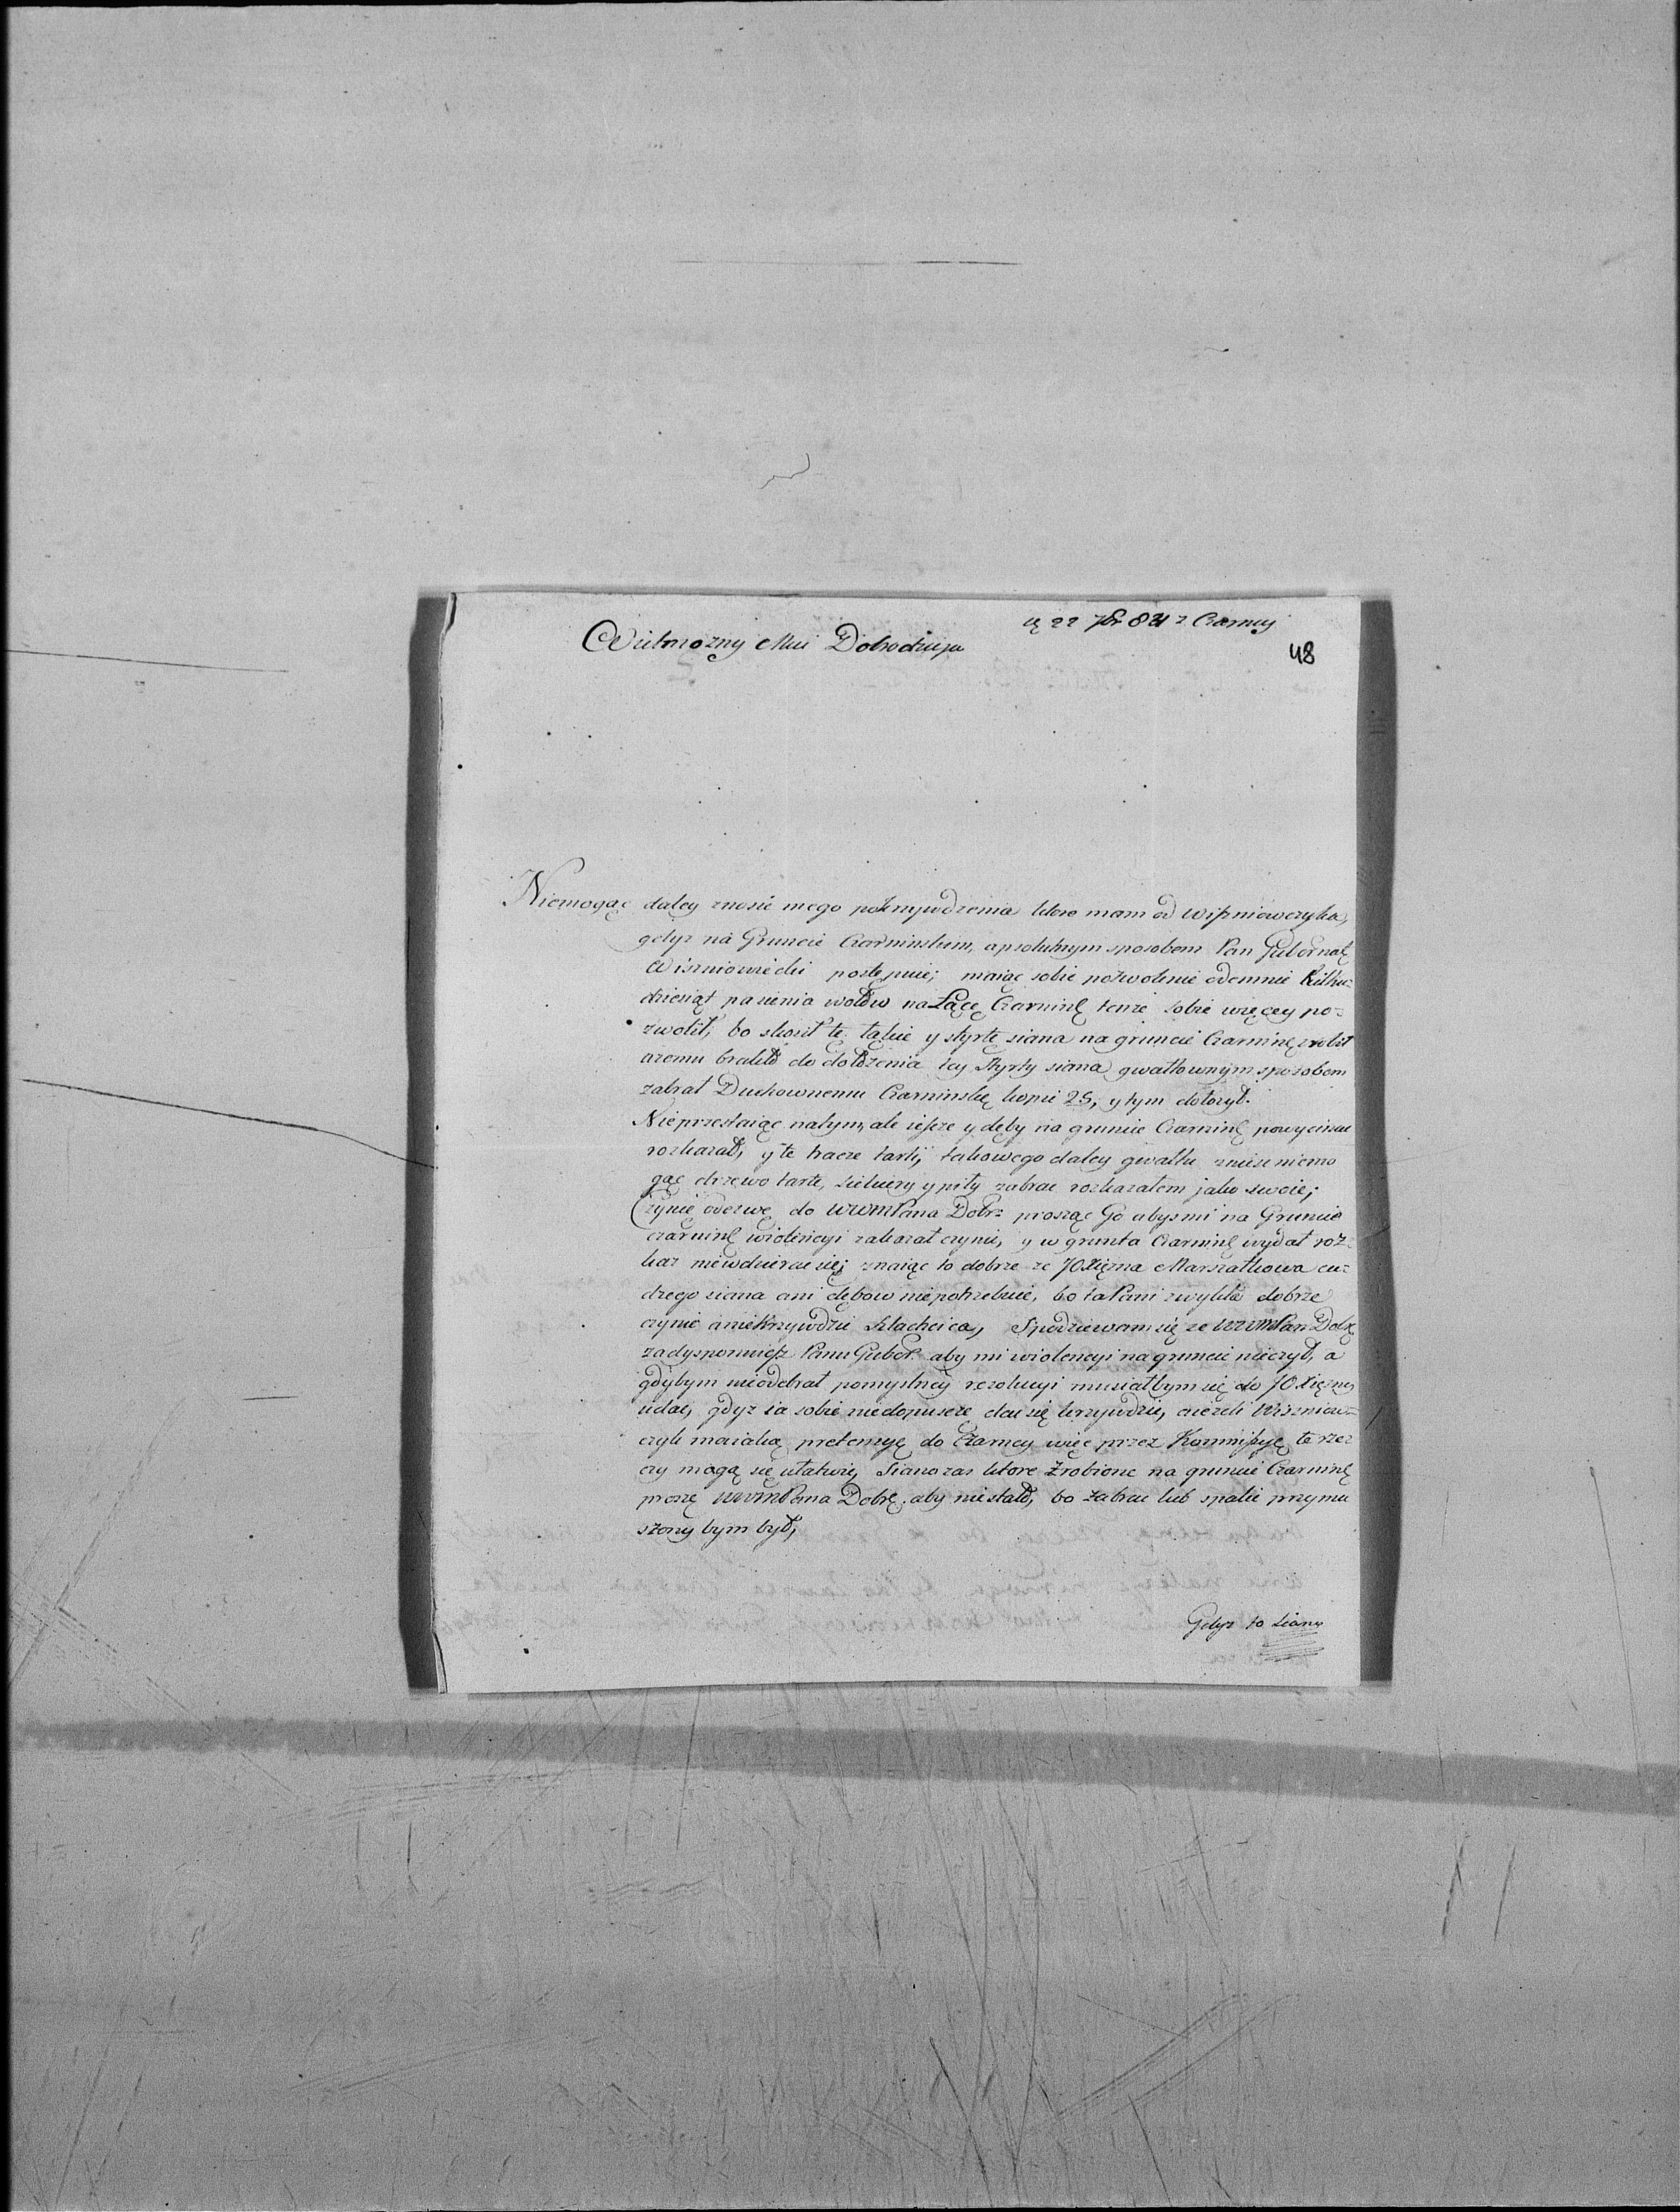 22 7br 821 z Czarney
48
Wielmożny Mci Dobrodzieju
Niemogąc daley znosić mego pokrzywdzenia które mam od Wiszniowczyka,
gdyż na Gruncie Czarninskim, apsolutnym sposobem Pan Gubernat
Wiszniowiecki postępuie; maiąc sobie pozwolenie odemnie Kilku=
dziesiąt pasienia wołów na Łące Czarninſ tenże sobie więcey po=
zwolił, bo skosił tę łąkie y styrtę siana na gruncie Czarninſ zrobił
azemu brakło do dołożenia tey styrty siana gwałtownym sposobem
zabrał Duchownemu Czarninskę kopic 25, y tym dołożył.
Nieprzestaiąc natym, ale ieszcze y dęby na gruncie Czarninſ powycinac
rozkazał, y te tracze tarli, takowego daley gwałtu znieść niemo
gąc drzewo tarte, siekiery y piły zabrac rozkazałem jako swoie;
Czynię odezwę do WWMPana Dobr= prosząc Go abyś mi na Gruncie
czarninſ wiolencyi zakazał czynić, y w grunta Czarninſ wydał roz=
kaz niewdzierac się; znaiąc to dobrze ze JOXiężna Marszałkowa cu=
dzego siana ani dębow niepotrzebuie, bo ta Pani zwykła dobrze
czynić a nie Krzywdzić Szlachcica, Spodziewam się ze WWMPan Dob
zadysponuiesz Panu Guber: aby mi wiolencyi na gruncie nieczył, a
gdybym nieodebrał pomyslney rezolucyi musiałbym się do JOXiężney
udac, gdyż ia sobie niedopuszczę dac się krzywdzic, a ieżeli Wiszniow=
czyk maiaką pretensyę do Czarney więc przez Kommissyę te rze=
czy mogą się ułatwić, Siano zas ktore zrobione na gruncie Czarninſ
proszę WWMPana Dobr. aby niestało, bo zabrac lub spalić przymu
szony bym był,
Gdyż to siano